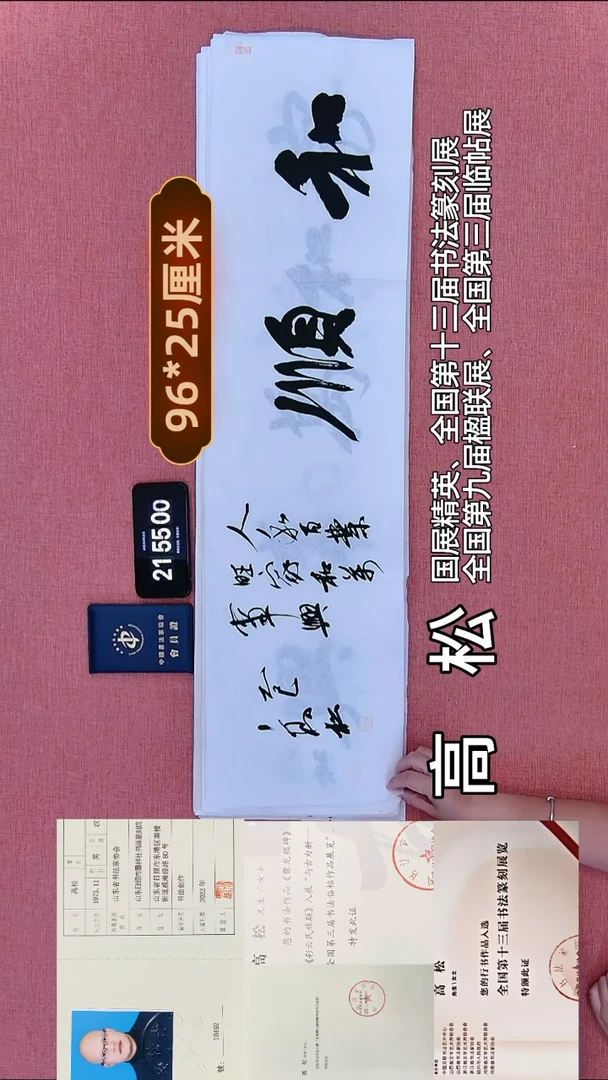 和順
人和百業
旺家和萬
事興
乙巳
高松
96*25厘米
21 55 00
中國書法家協會
會員證
高 松
国展精英、全国第十三届书法篆刻展
全国第九届楹联展、全国第三届临帖展
高松
1973.11
男
汉
山东省书法家协会
书法创作
2022年
18492
高 松 先生/女士
您的书法作品《爨龙颜碑》
全国第三届书法临帖作品展览"
特发此证
高 松
先生\女士
您的行书作品入选
全国第十三届书法篆刻展览
特颁此证